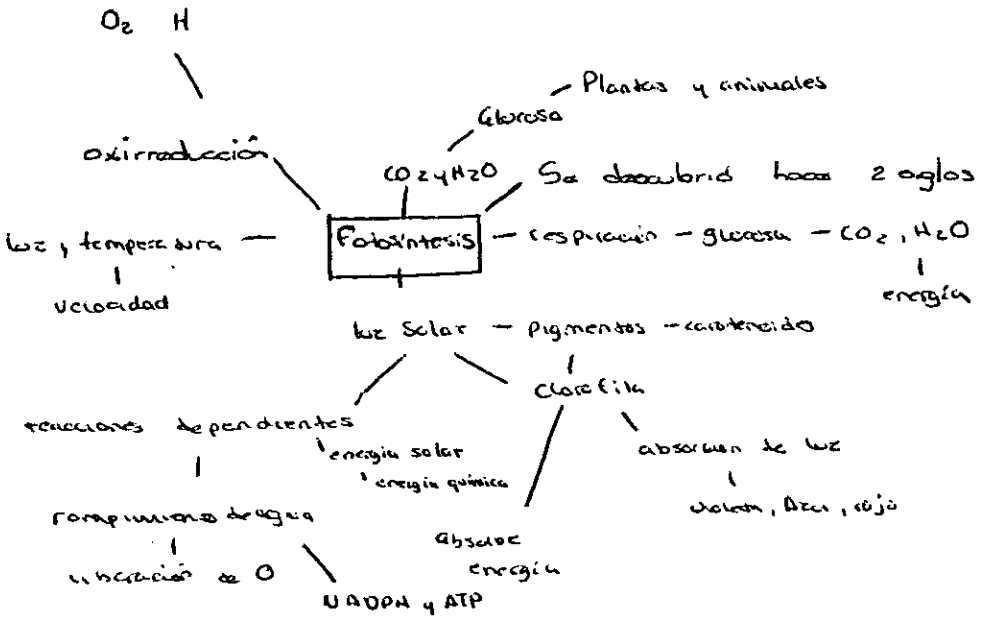 O₂ H
Plantas y animales
Glucosa
oxirreducción
CO₂ y H₂O
Se descubrió hace 2 siglos
luz, temperatura
Fotosíntesis
respiración - glucosa - CO₂, H₂O
velocidad
energía
luz Solar - Pigmentos - carotenoido
Clorofila
reacciones dependientes
energía solar
energía química
absorcion de luz
violeta, Azul, rojo
rompimiento de agua
absorbe
energía
liberación de O
NADPH y ATP